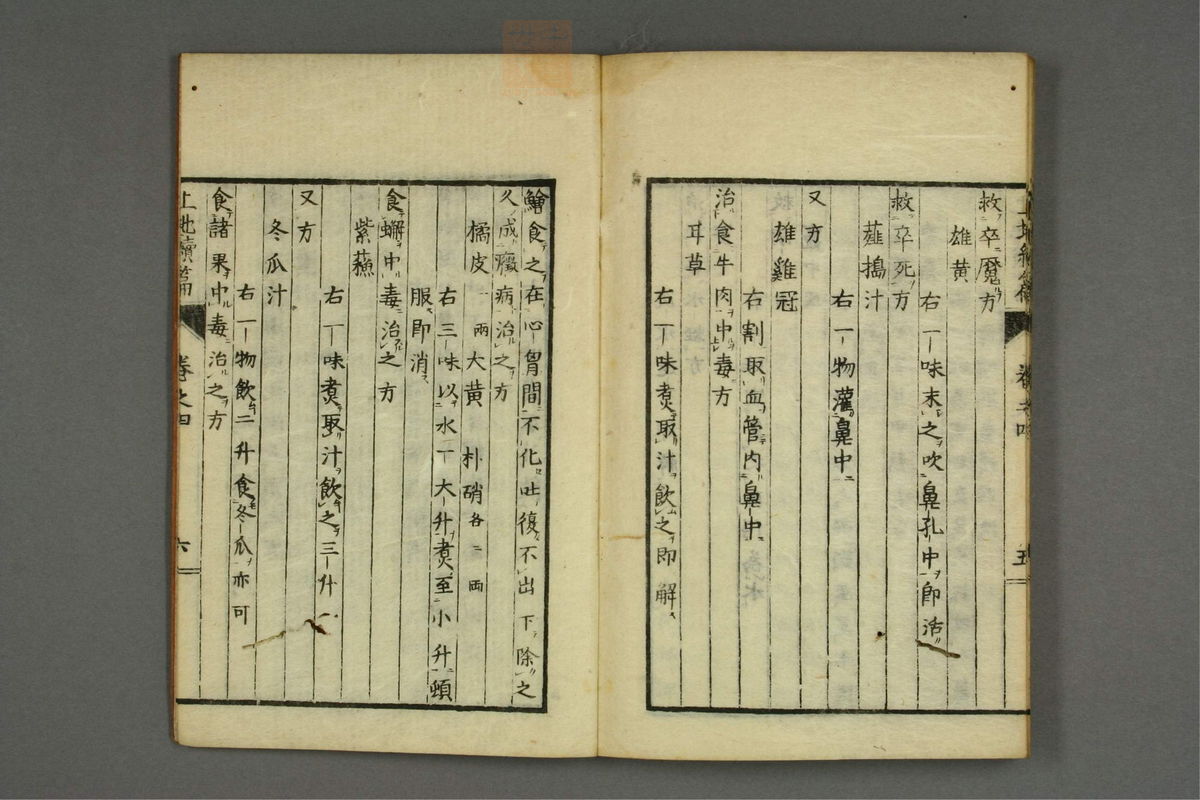 救卒魘方
雄黄
右一味末之吹鼻孔中即活
救卒死方
薤搗汁
右一物灌鼻中
又方
雄雞冠
右割取血管内鼻中
治食牛肉中毒方
耳草
右一味煮取汁飲之即解
五
鱠食之在心胃間不化吐復不出下除之
久成癥病治之方
橘皮一両大黄朴硝各二両
右三味以水一大升煮至小升頓
服即消
食蠏中毒治之方
紫蘓
右一味煮取汁飲之三升
又方
冬瓜汁
右一物飲二升食冬瓜亦可
食諸果中毒治之方
上池續篇 卷之四 六